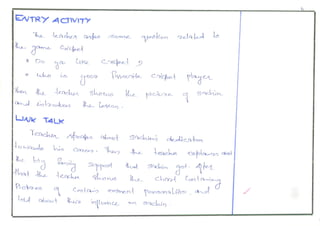 ENTRY ACTIVITY
The teacher asks some question related to
the game Cricket
* Do you like Cricket ?
* who is your favourite cricket player
Then the teacher shows the picture of sachin
and introduces the lesson.
LINK TALK
Teacher speaks about Sachin's dedication
towards his career. Then the teacher explains about
the big family support that sachin got. After
that the teacher shows the chart containing
Pictures of certain eminent personalities and
told about their influence on sachin